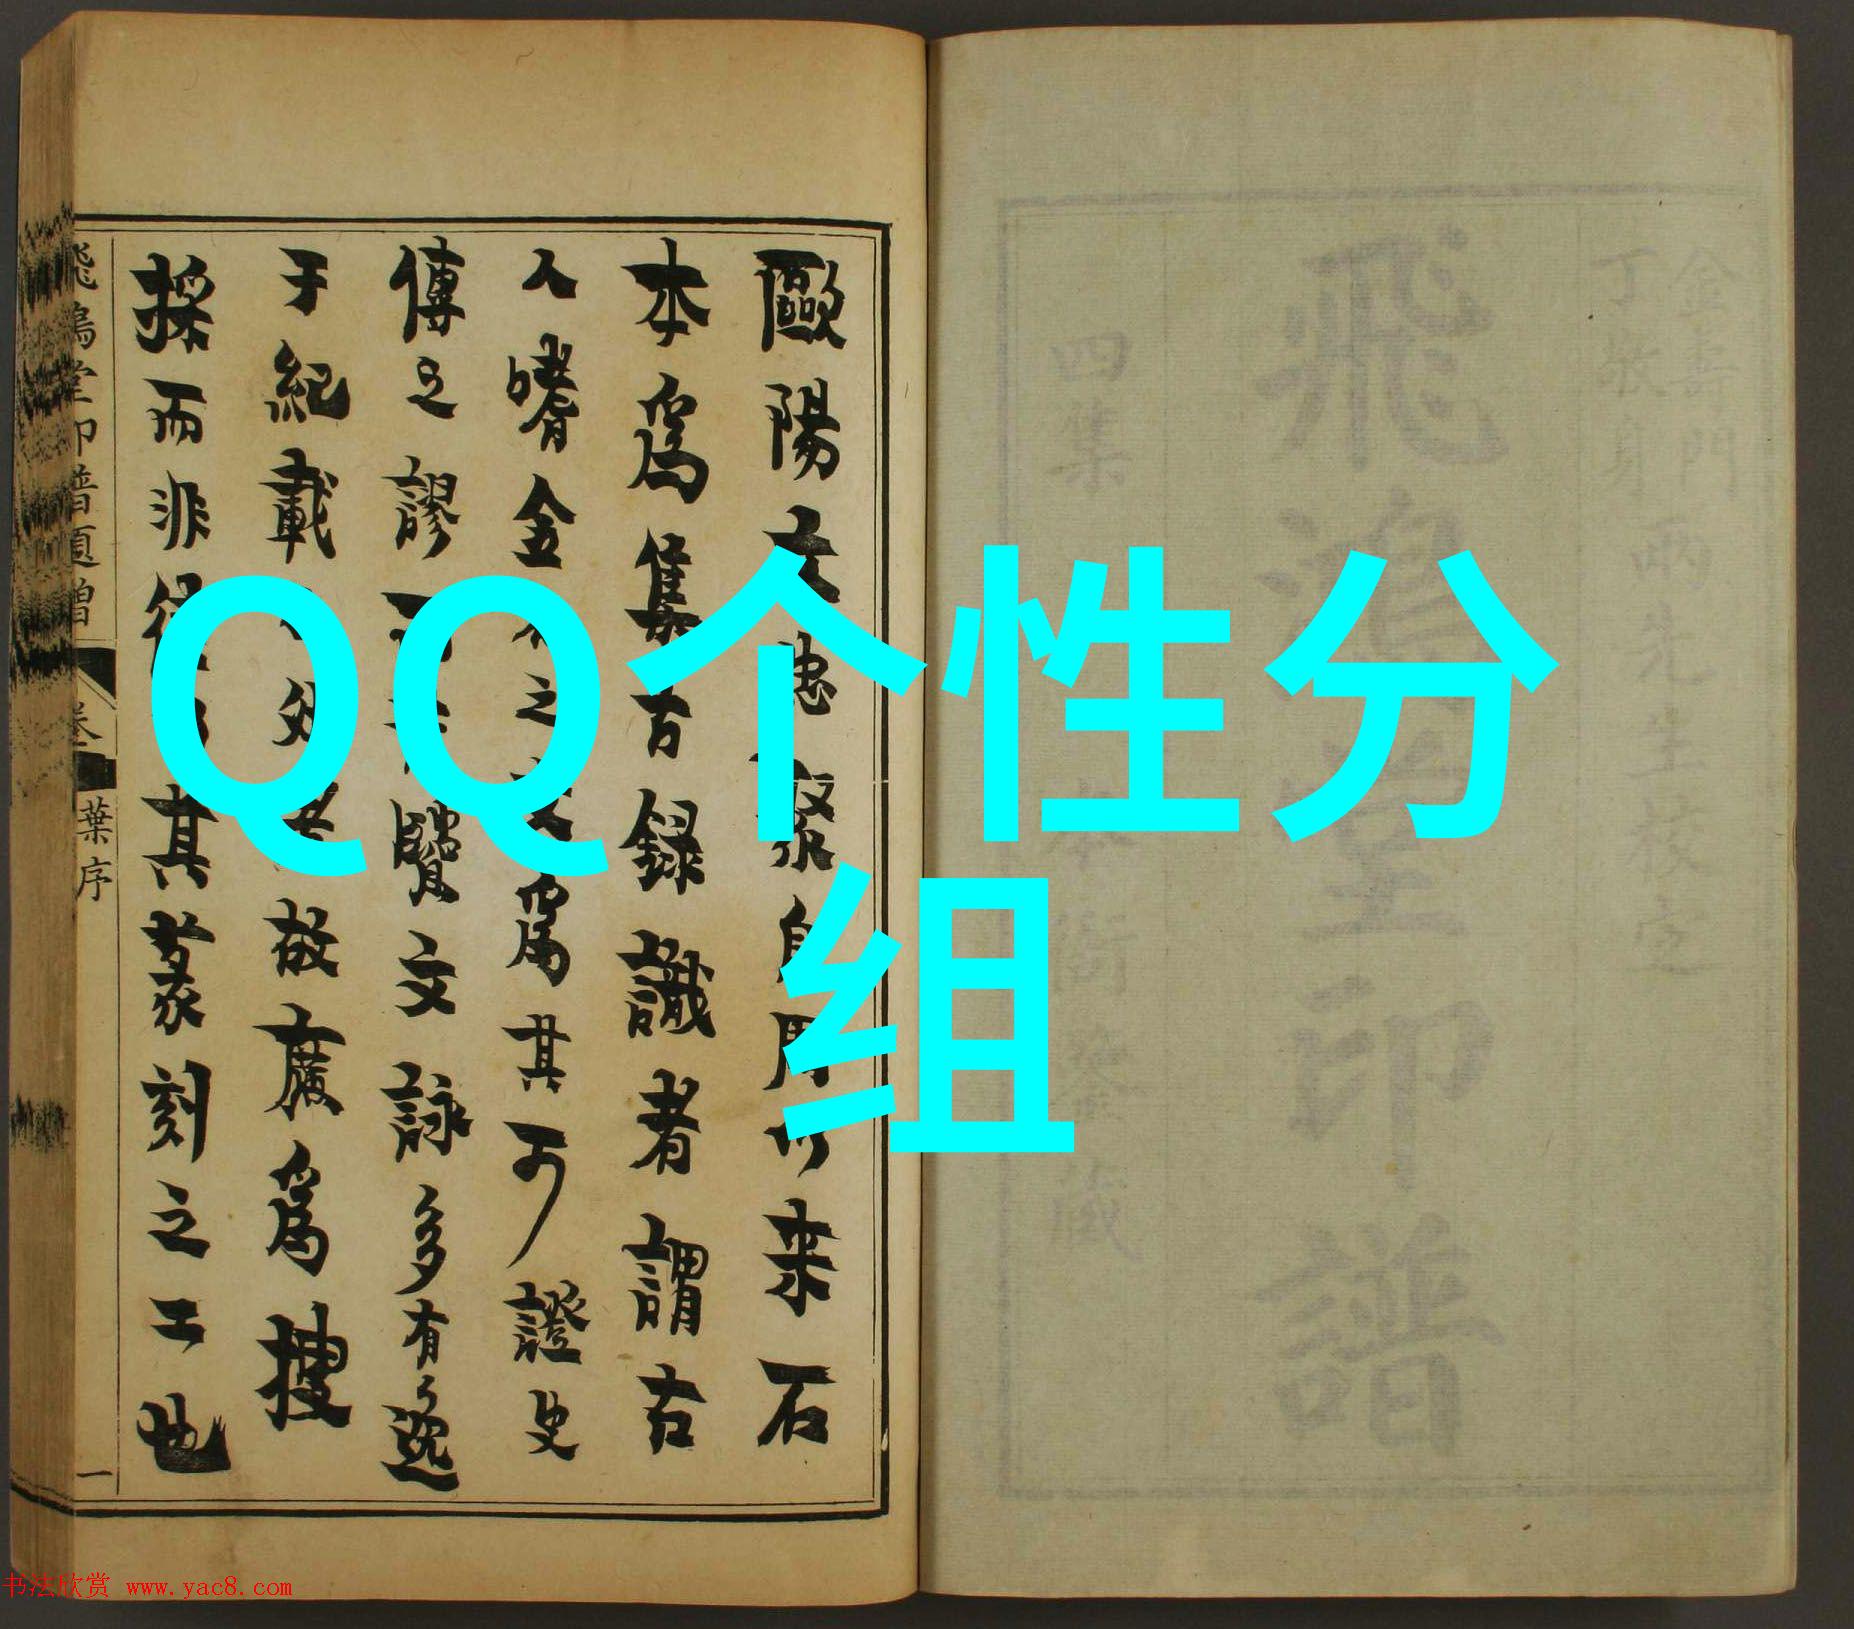 QQ个性分
组
歐陽文忠聚自周以来石
本爲集古録識者謂古
人嗜金石之文爲其可證史
傳之謬而 覽文詠多有逸
于紀載 敘廣爲搜
採而非徒 其篆刻之工也
飛鴻堂印譜 卷 葉序 一
金壽門
丁敬身 兩先生校定
飛鴻堂印譜
四集 藏
书法欣赏 www.yac8.com